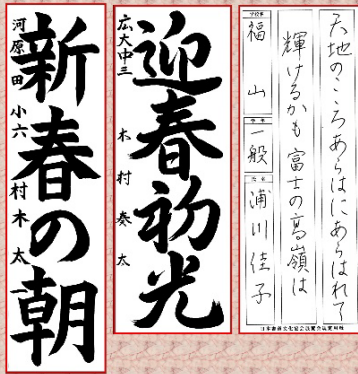 天地のこころあらはにあらはれて
輝けるかも富士の高嶺は
福山
一般
氏名
浦川佳子
迎春初光
広大中三 木村奏太
新春の朝
河原田小六 村木太一